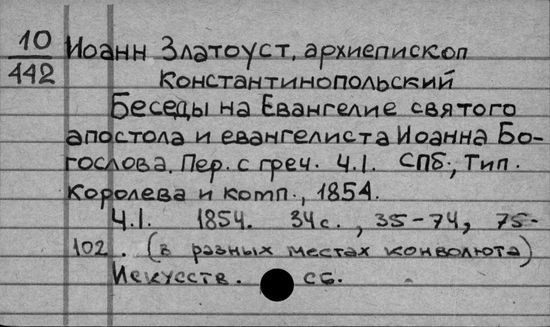 10
442
Иоанн Златоуст, архиепископ
Константинопольский
Беседы на Евангелие святого
апостола и евангелиста Иоанна Бо-
гослова. Пер. с греч. Ч.1. СПб., Тип.
Королева и комп., 1854.
Ч.1. 1854. 34с., 35-74, 75-
102. (в разных местах конволюта)
Искусств. сб.